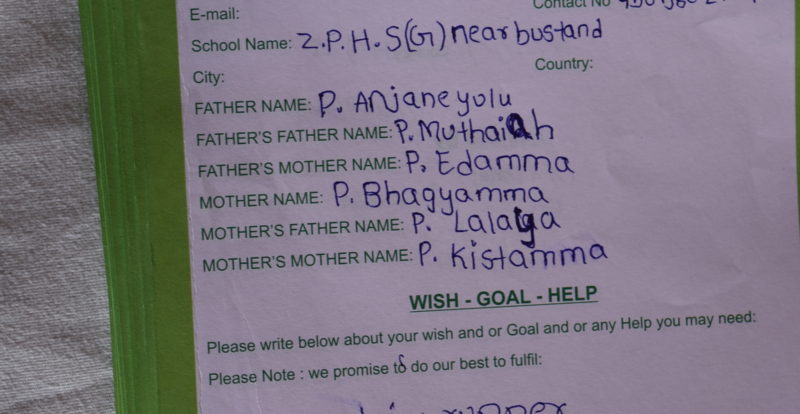 E-mail: Contact No
School Name: Z.P.H.S(G) near bustand
City: Country:
FATHER NAME: P. Anjaneyulu
FATHER'S FATHER NAME: P. Muthaiah
FATHER'S MOTHER NAME: P. Edamma
MOTHER NAME: P. Bhagyamma
MOTHER'S FATHER NAME: P. Lalaiya
MOTHER'S MOTHER NAME: P. Kistamma
WISH - GOAL - HELP
Please write below about your wish and or Goal and or any Help you may need:
Please Note : we promise to do our best to fulfil: